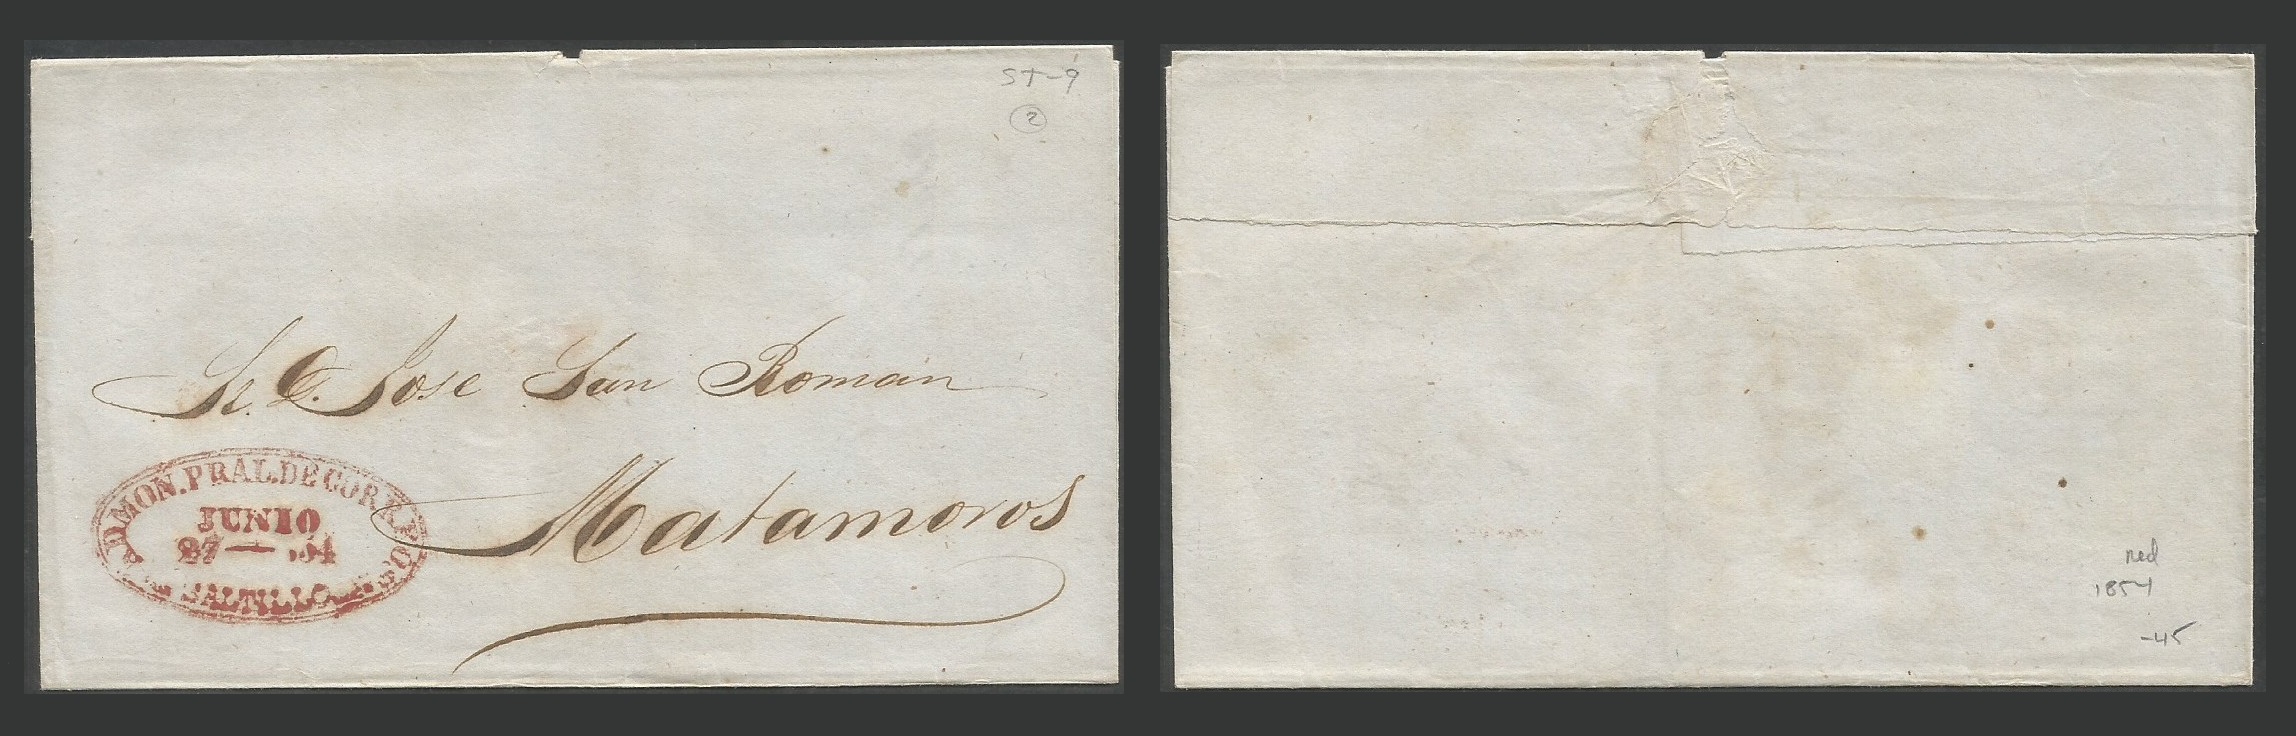 ST-9
2
Sr. D. Jose San Roman
Matamoros
ADMON. PRAL. DE CORREOS
JUNIO
27 — 54
SALTILLO
red
1854
-45